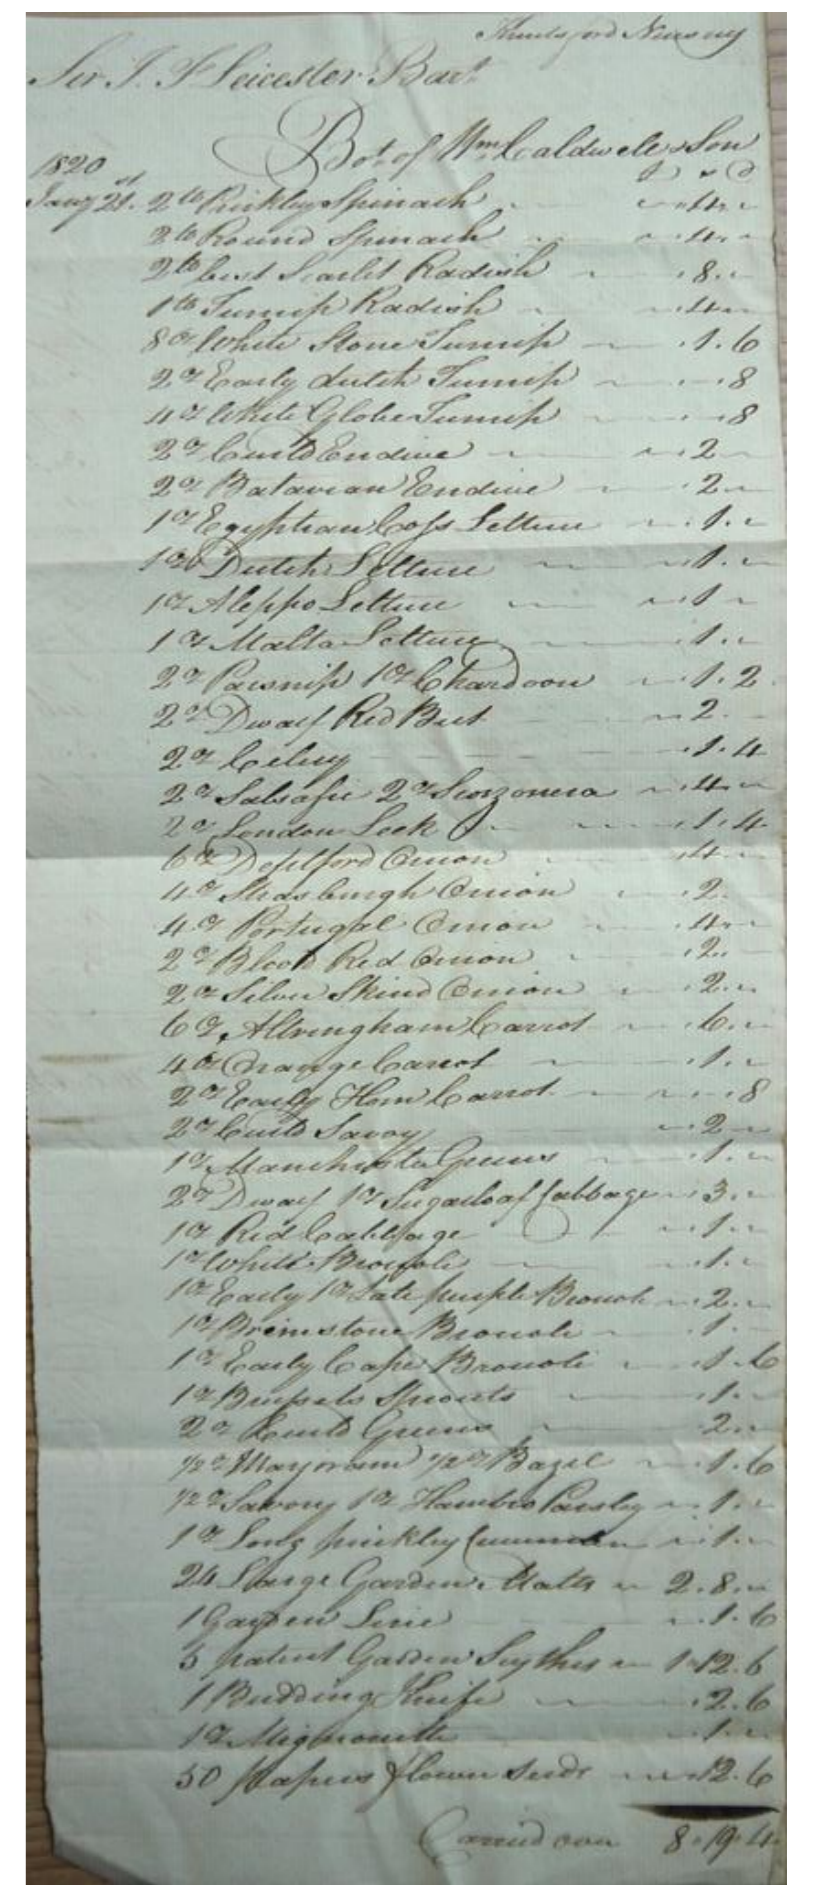 Knutsford Nursery
Sir J. F Leicester Bart
Bot. of Wm Caldwell & Son
1820
£ s d
Jany 21st. 2 lb Prickley Spinach " 4. "
2 lb Round Spinach " 4. "
2 lb best Scarlet Radish " 8. "
1 lb Turnip Radish " 4 "
8 oz White Stone Turnip " 1. 6
2 oz Early dutch Turnip " " 8
4 oz White Globe Turnip " " 8
2 oz Curld Endive " 2 "
2 oz Batavian Endive " 2 "
1 oz Egyptian Coss Lettuce " 1. "
1 oz Dutch Lettuce " 1. "
1 oz Aleppo Lettuce " 1 "
1 oz Malta Lettuce " 1. "
2 oz Parsnip 1 oz Chardoon " 1. 2
2 oz Dwarf Red Beet " 2.
2 oz Celery " 1. 4
2 oz Salsafie 2 oz Scorzonera " 4 "
2 oz London Leek " 1. 4
6 oz Deptford Onion " 4 "
4 oz Strasburgh Onion " 2.
4 oz Portugal Onion " 4 "
2 oz Blood Red Onion " 2.
2 oz Silver Skind Onion " 2. "
6 oz Altringham Carrot " 6. "
4 oz Orange Carrot " 1. "
2 oz Early Horn Carrot " " 8
2 oz Curld Savoy " 2 "
1 oz Manchester Greens " 1. "
2 oz Dwarf 1 oz Sugarloaf Cabbage " 3. "
1 oz Red Cabbage " 1. "
1 oz White Brocoli " 1. "
1 oz Early 1 oz Late purple Brocoli " 2. "
1 oz Brimstone Brocoli " 1.
1 oz Early Cape Brocoli " 1. 6
1 oz Brussels Sprouts " 1. "
2 oz Curld Greens 2. "
1/2 oz Marjoram 1/2 oz Bazil " 1. 6
1/2 oz Savory 1 oz Hambro Parsley " 1. "
1 oz Long prickley " 1. "
24 Large Garden Matts 2. 8. "
1 Garden Line " 1. 6
5 patent Garden Scythes 1 " 12. 6
1 Budding Knife " 2. 6
1 oz Mignonette " 1. "
50 papers flower seeds " 12. 6
Carried over 8 " 19. 4